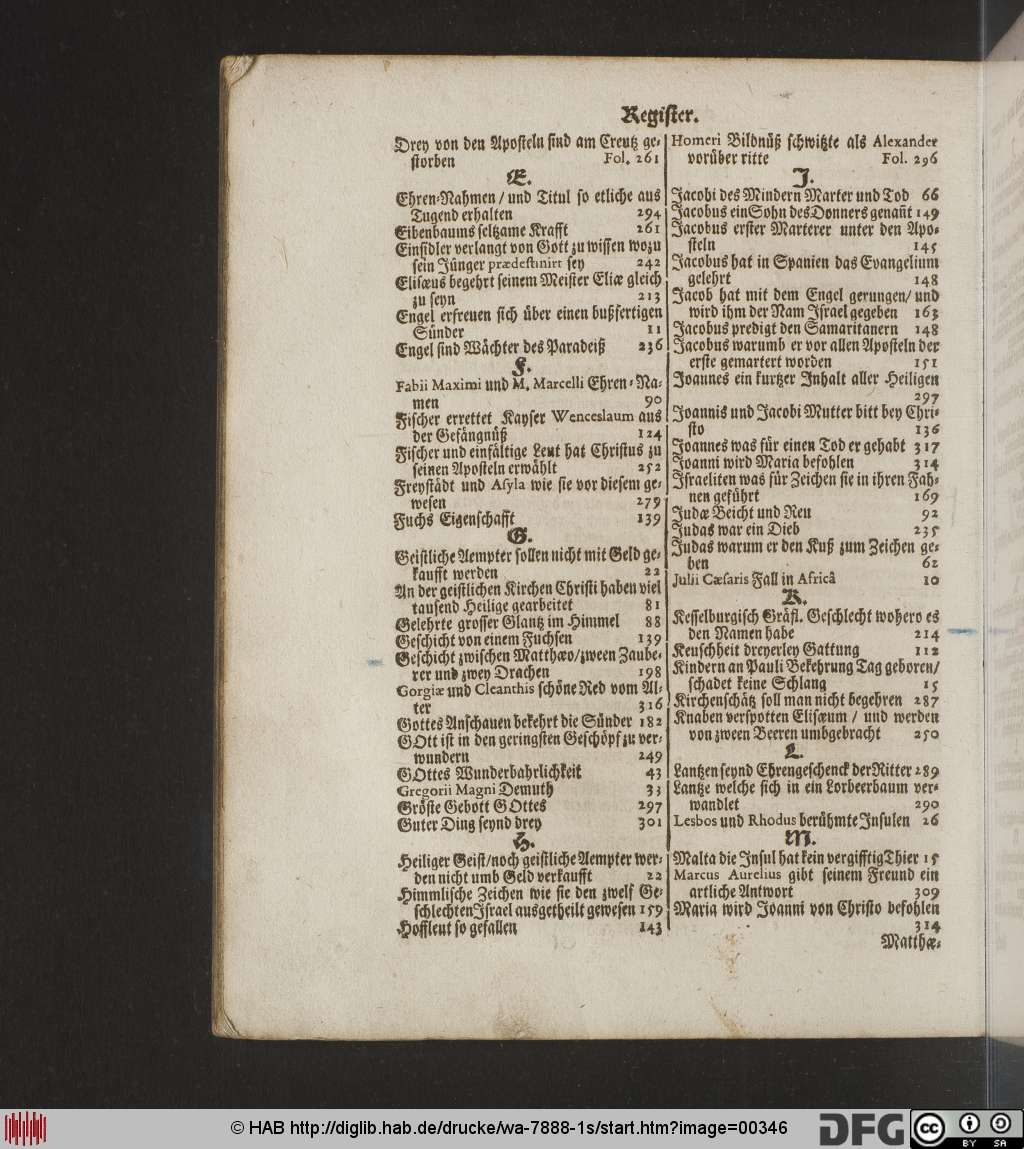 Register.
Drey von den Aposteln sind am Creutz ge-
storben Fol. 261
E.
Ehren-Nahmen / und Titul so etliche aus
Tugend erhalten 294
Eibenbaums seltzame Krafft 261
Einsidler verlangt von Gott zu wissen wozu
sein Jünger prædestinirt sey 242
Elisæus begehrt seinem Meister Eliæ gleich
zu seyn 213
Engel erfreuen sich über einen bußfertigen
Sünder 11
Engel sind Wächter des Paradeiß 236
F.
Fabii Maximi und M. Marcelli Ehren-Na-
men 90
Fischer errettet Kayser Wenceslaum aus
der Gefängnüß 124
Fischer und einfältige Leut hat Christus zu
seinen Aposteln erwählt 252
Freystädt und Asyla wie sie vor diesem ge-
wesen 279
Fuchs Eigenschafft 139
G.
Geistliche Aempter sollen nicht mit Geld ge-
kaufft werden 22
An der geistlichen Kirchen Christi haben viel
tausend Heilige gearbeitet 81
Gelehrte grosser Glantz im Himmel 88
Geschicht von einem Fuchsen 139
Geschicht zwischen Matthæo / zween Zaube-
rer und zwey Drachen 198
Gorgiæ und Cleanthis schöne Red vom Al-
ter 316
Gottes Anschauen bekehrt die Sünder 182
GOtt ist in den geringsten Geschöpf zu ver-
wundern 249
GOttes Wunderbahrlichkeit 43
Gregorii Magni Demuth 33
Gröste Gebott GOttes 297
Guter Ding seynd drey 301
H.
Heiliger Geist / noch geistliche Aempter wer-
den nicht umb Geld verkaufft 22
Himmlische Zeichen wie sie den zwelf Ge-
schlechten Israel ausgetheilt gewesen 159
Hoffleut so gefallen 143
Homeri Bildnüß schwitzte als Alexander
vorüber ritte Fol. 296
J.
Jacobi des Mindern Marter und Tod 66
Jacobus ein Sohn des Donners genañt 149
Jacobus erster Marterer unter den Apo-
steln 145
Jacobus hat in Spanien das Evangelium
gelehrt 148
Jacob hat mit dem Engel gerungen / und
wird ihm der Nam Israel gegeben 163
Jacobus predigt den Samaritanern 148
Jacobus warumb er vor allen Aposteln der
erste gemartert worden 151
Joannes ein kurtzer Inhalt aller Heiligen
297
Joannis und Jacobi Mutter bitt bey Chri-
sto 136
Joannes was für einen Tod er gehabt 317
Joanni wird Maria befohlen 314
Israeliten was für Zeichen sie in ihren Fah-
nen geführt 169
Judæ Beicht und Reu 92
Judas war ein Dieb 235
Judas warum er den Kuß zum Zeichen ge-
ben 62
Julii Cæsaris Fall in Africâ 10
K.
Kesselburgisch Gräfl. Geschlecht wohero es
den Namen habe 214
Keuschheit dreyerley Gattung 112
Kindern an Pauli Bekehrung Tag geboren /
schadet keine Schlang 15
Kirchenschätz soll man nicht begehren 287
Knaben verspotten Elisæum / und werden
von zween Beeren umbgebracht 250
L.
Lantzen seynd Ehrengeschenck der Ritter 289
Lantze welche sich in ein Lorbeerbaum ver-
wandlet 290
Lesbos und Rhodus berühmte Insulen 26
M.
Malta die Insul hat kein vergifftig Thier 15
Marcus Aurelius gibt seinem Freund ein
artliche Antwort 309
Maria wird Joanni von Christo befohlen
314
Matthæ-
© HAB http://diglib.hab.de/drucke/wa-7888-1s/start.htm?image=00346
DFG
cc
BY SA